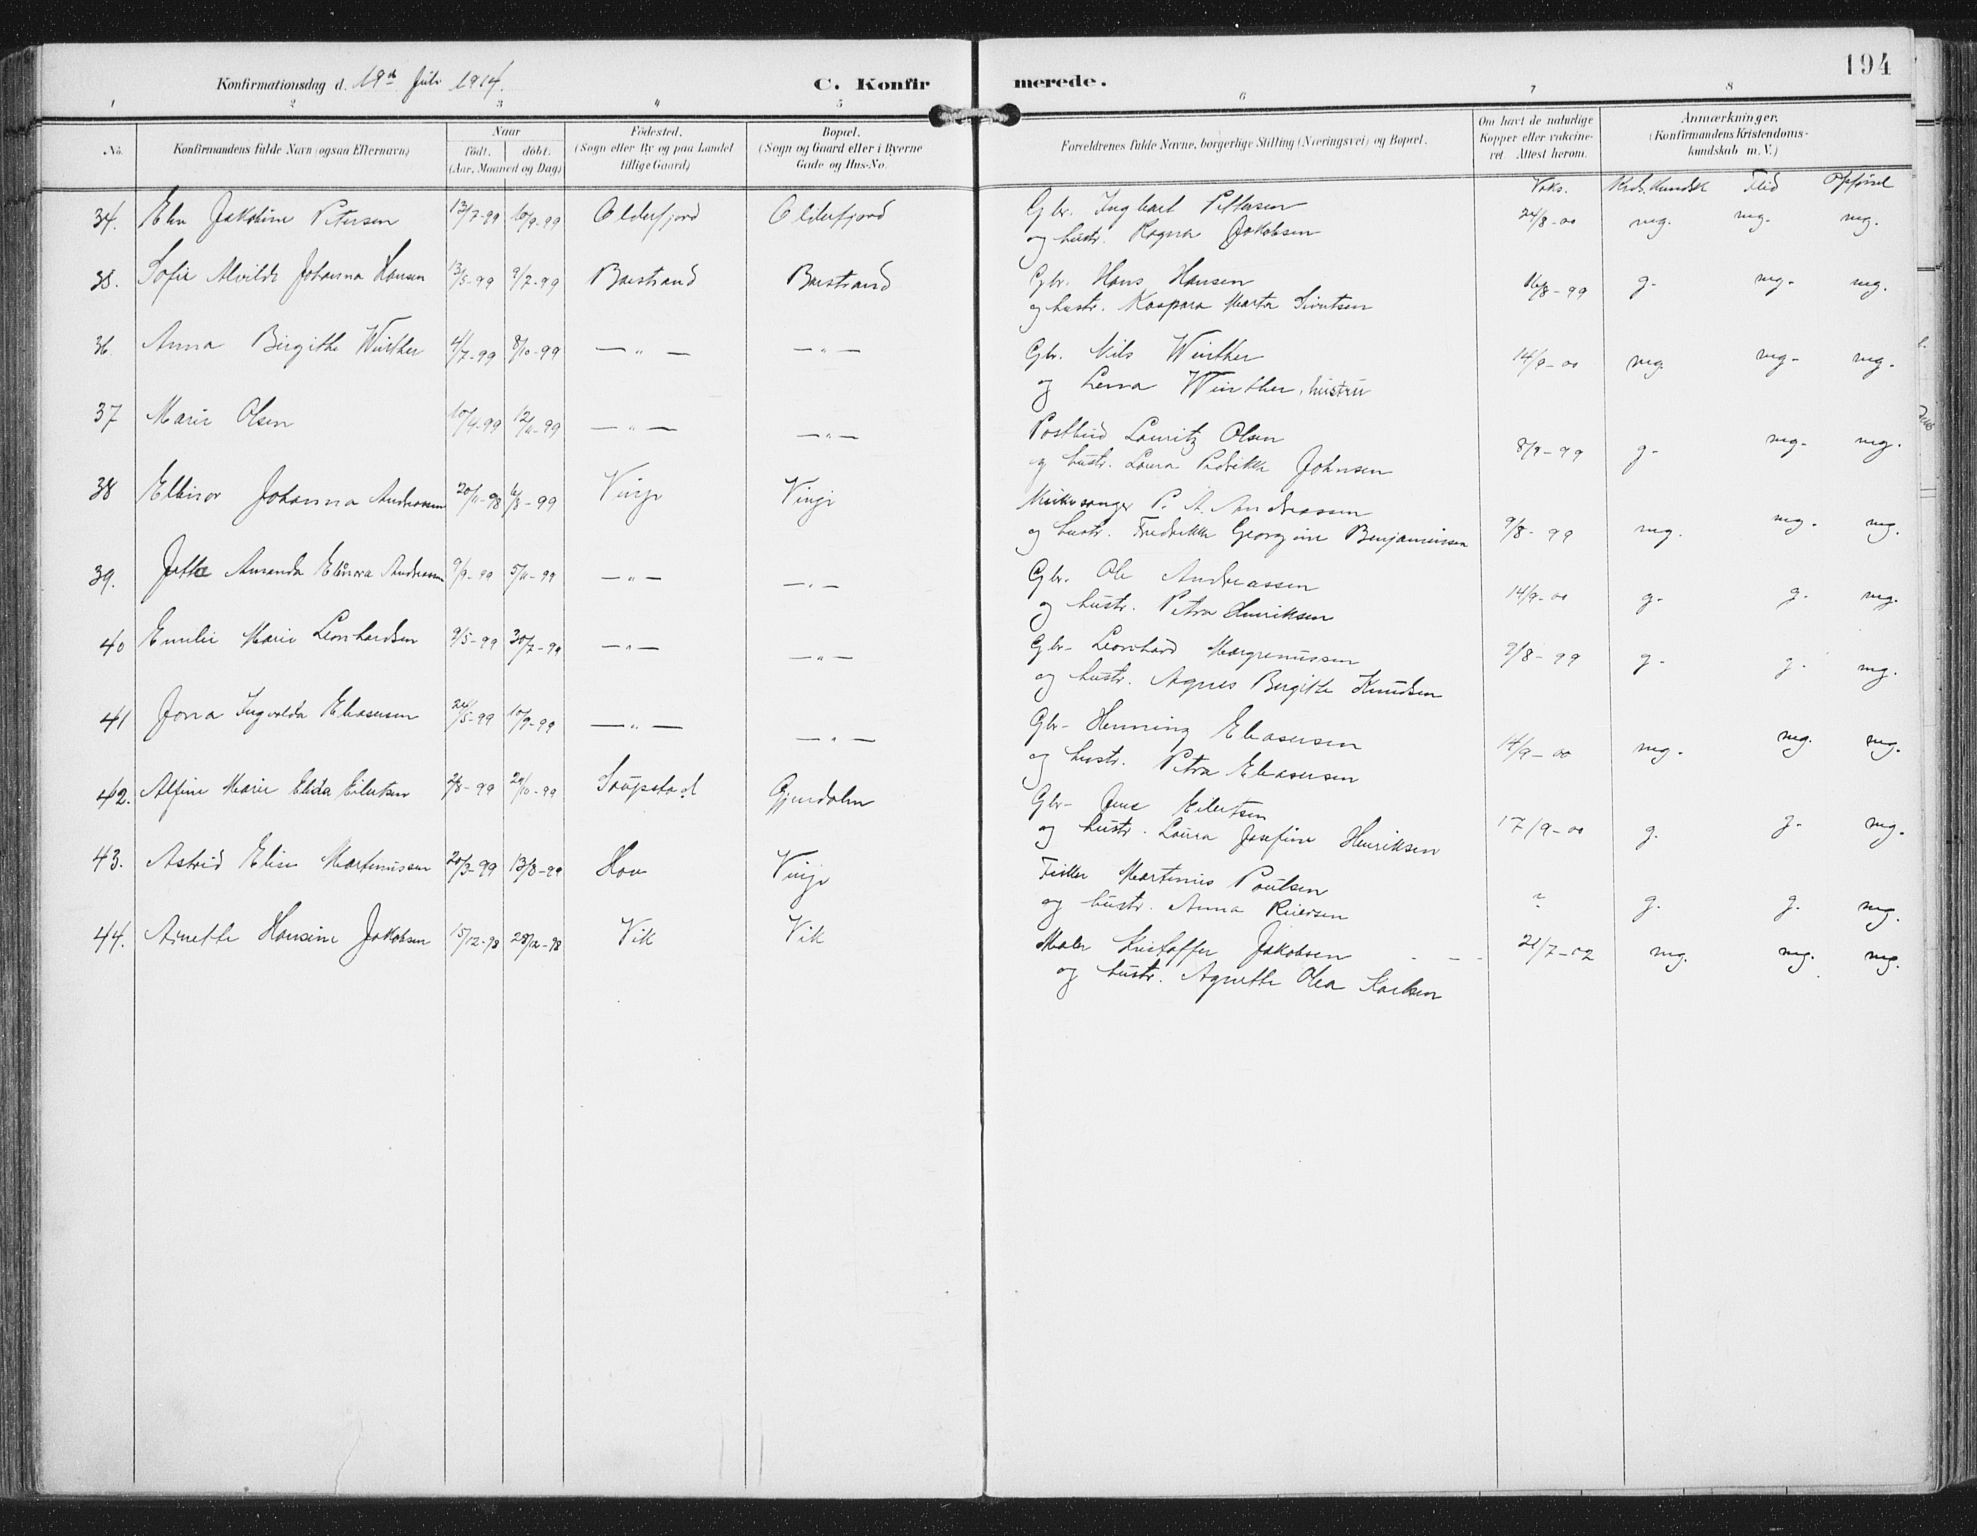 194
Konfirmationsdag d. 19de Juli 1914.
C. Konfirmerede.
1 2 3 4 5 6 7 8
No.
Konfirmandens fulde Navn (ogsaa Efternavn)
Naar
födt. döbt.
(Aar, Maaned og Dag)
Födested.
(Sogn eller By og paa Landet
tillige Gaard)
Bopæl.
(Sogn og Gaard eller i Byerne
Gade og Hus-No.
Forældrenes fulde Navne, borgerlige Stilling (Næringsvei) og Bopæl.
Om havt de naturlige
Kopper eller vakcine-
ret. Attest herom.
Anmærkninger.
(Konfirmandens Kristendoms-
kundskab m. V.)
Vaks. Krds. Kundsk Flid Opførsel
34. Elen Jakobine Petersen 13/7-99 10/9-99 Olderfjord Olderfjord Gbr. Ingbart Pettersen 24/8-00 mg. mg. mg.
og hustr. Ragna Jakobsen
35. Sofie Alvilde Johanna Hansen 13/5-99 9/7-99 Barstrand Barstrand Gbr. Hans Hansen 16/8-99 g. mg. mg.
og hustr. Kaspara Marta Sivertsen
36. Anna Birgithe Winther 4/7-99 8/10-99 — " — — " — Gbr. Nils Winther 14/9-00 mg. mg. mg.
og Lena Winther, hustru
37 Marie Olsen 10/9-99 12/11-99 — " — — " — Postbud Lauritz Olsen 8/9-99 g. mg. mg.
og hustr. Laura Johnsen
38 Ellinor Johanna Andreassen 20/11-98 6/8-99 Vinje Vinje Kirkesanger P. A. Andreassen 9/8-99 mg. mg. mg.
og hustr. Fredrikke Georgine Benjaminsen
39. Amanda Elinora Andreassen 9/9-99 5/11-99 — " — — " — Gbr. Ole Andreassen 14/9-00 g. g. mg.
og hustr. Petra Henriksen
40 Emilie Marie Leonhardsen 9/5-99 30/7-99 — " — — " — Gbr. Leonhard 9/8-99 g. g. mg.
og hustr. Agnes Birgitte Knudsen
41 Jona Ingvalda Eliasersen 24/5-99 10/9-99 — " — — " — Gbr. Henning Eliasersen 14/9-00 mg. mg. mg.
og hustr. Petra Eliasersen
42. Alfine Marie Elida Eilertsen 2/8-99 29/10-99 Saupstad Gjerdalen Gbr. Jens Eilertsen 17/9-00 g. g. mg.
og hustr. Laura Josefine Henriksen
43. Astrid Elise Martinussen 20/3-99 13/8-99 Hov Vinje Fisker Martinus Poulsen ? g. g. mg.
og hustr. Anna Reiersen
44. Arnette Hansine Jakobsen 15/12-98 28/12-98 Vik Vik Maler Kristoffer Jakobsen 21/7-02 mg. mg. mg.
og hustr. Agnethe Olea Karlsen